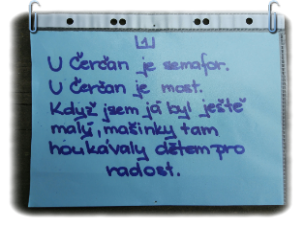 1
U Čerčan je semafor.
U Čerčan je most.
Když jsem já byl ještě
malý, mašinky tam
houkávaly dětem pro
radost.